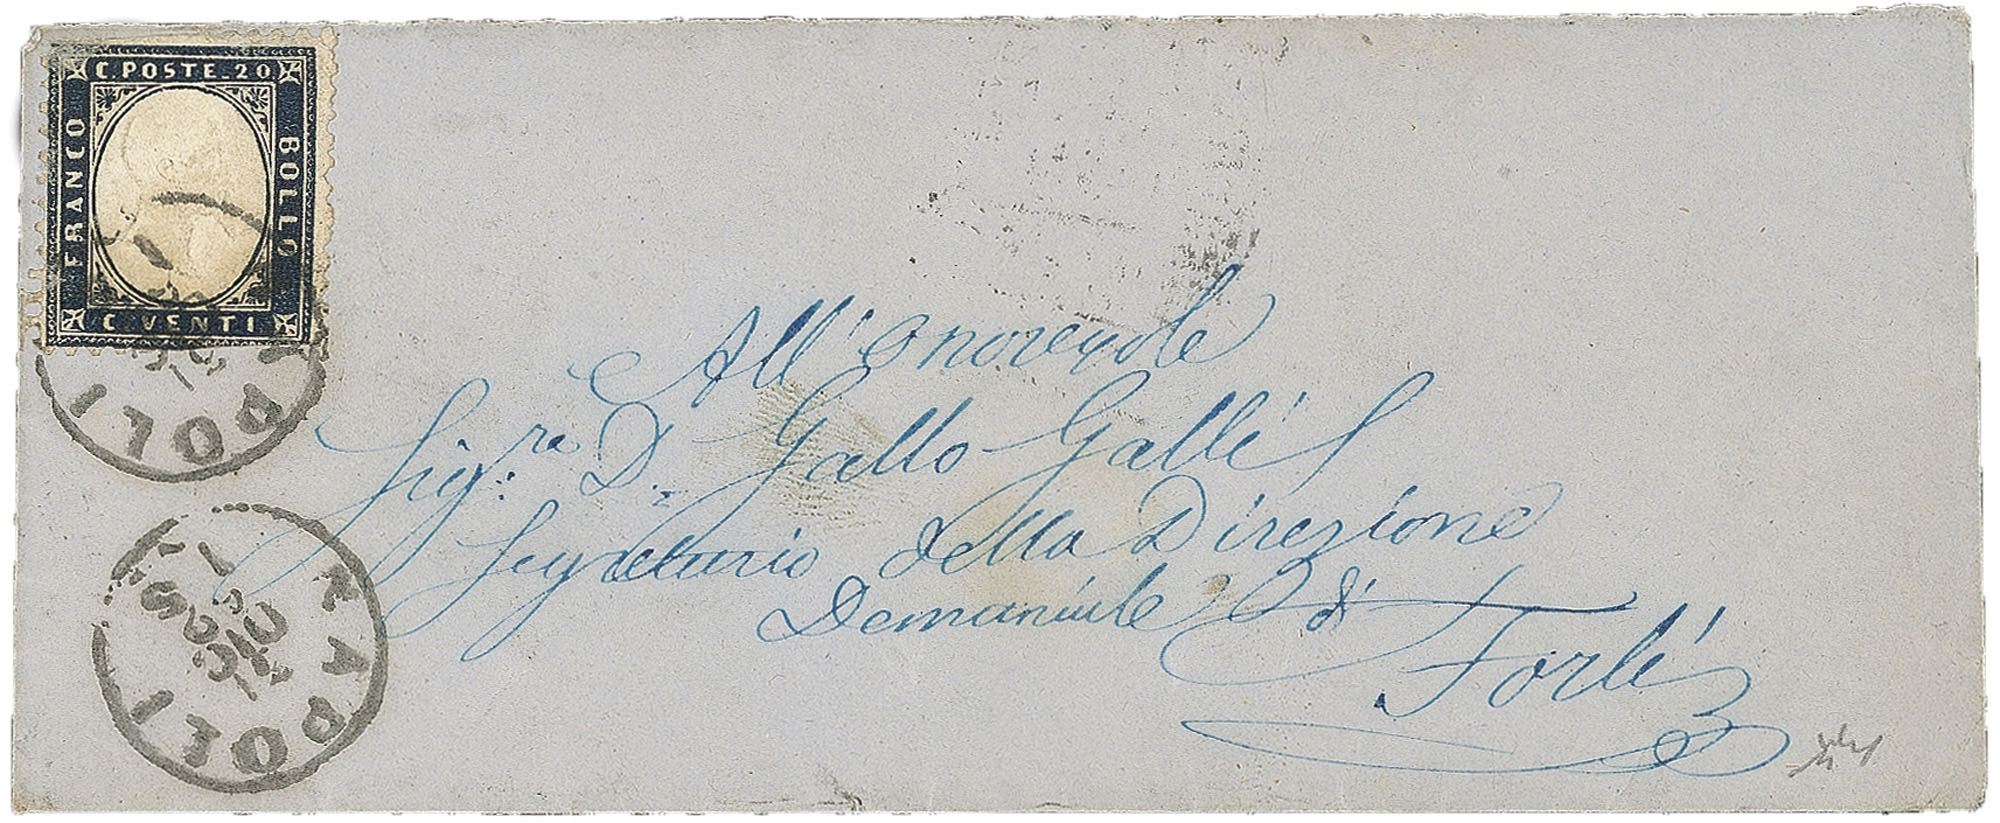 C. POSTE. 20
FRANCO
BOLLO
C. VENTI
NAPOLI
NAPOLI
All'Onorevole
Sig.re D. Gallo Gallé
Segretario della Direzione
Demaniale di
Forlì